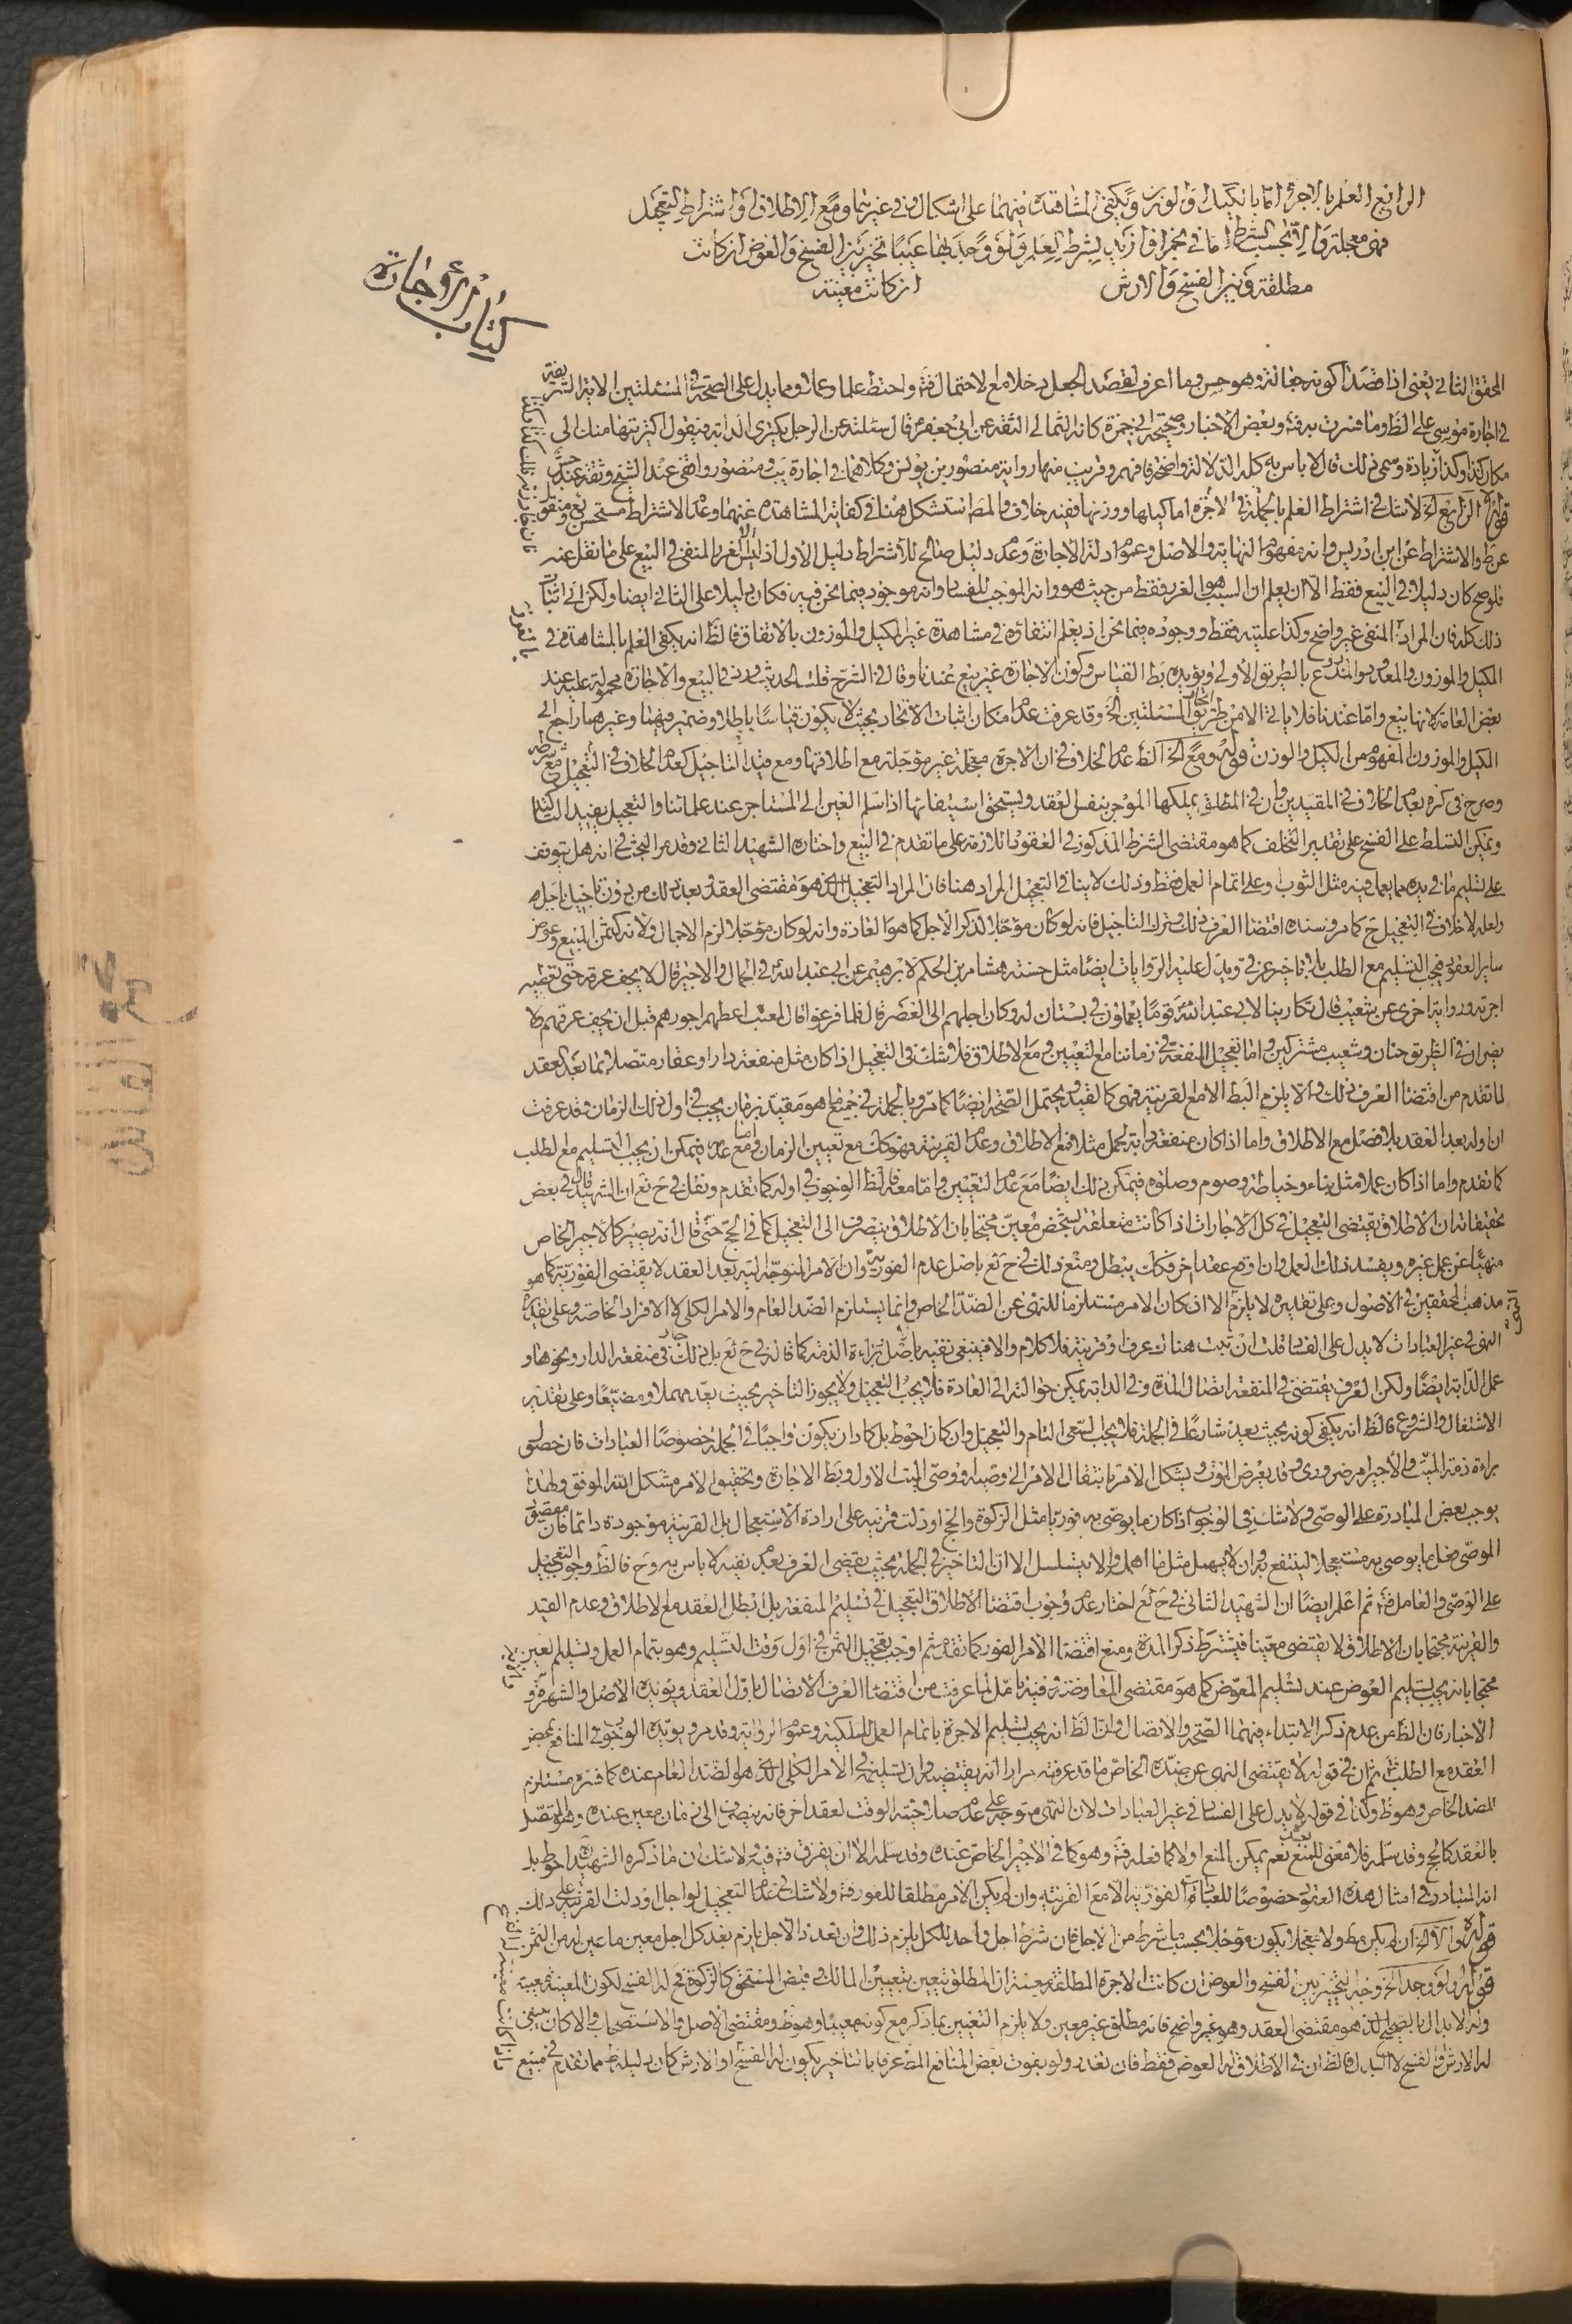 الرابع العلم بالاجرة اما بالكيل او الوزن ويكفي المشاهدة فيهما على اشكال وفي غيرهما ومع الاطلاق او اشتراط التعجيل
فهي معجلة والا بحسب الشرط اما في نجم او ازيد بشرط العلم ولو وجد بها عيبا تخير بين الفسخ والعوض ان كانت
مطلقة وبين الفسخ والارش ان كانت معينة
كتاب الأجارة
المحقق الثاني يعني اذا قصدا كونه جعالة وهو حسن وما اعرف لقصد الجعل دخلا مع لاحتمال فتأ واحتط علما وعملا ومما يدل على الصحة في المسئلتين الاية الشريفة
في اجارة موسى على الظ وما فسرت به فتأ وبعض الاخبار وصحيحة ابي حمزة كانه الثمالي الثقة عن ابي جعفر ع قال سئلته عن الرجل يكتري الدابة فيقول اكتريتها منك الى
مكان كذا وكذا زيادة وسمى ذلك قال لا باس به كله الدلالة واضحة فافهم وقريب منها رواية منصور بن يونس وكلاهما في اجارة يب ومنصور واقفي عند الشيخ وثقة عند جش
قوله الرابع الخ لا شك في اشتراط العلم بالجملة في الاجرة اما كيلها ووزنها ففيه خلاف والمصـ استشكل هنا في كفاية المشاهدة عنهما وعدم الاشتراط مستحسن يع ومنقول
عن ط والاشتراط عن ابن ادريس وانه مفهوم النهاية والاصل وعموم ادلة الاجارة وعدم دليل صالح للاشتراط دليل الاول اذ ليس الغرر المنفي في البيع على ما نقل عنه
فلو صح كان دليلا في البيع فقط الا ان يعلم ان السبب هو الغرر فقط من حيث هو وانه الموجب للفساد وانه موجود فيما نحن فيه فكان دليلا على الثاني ايضا ولكن انى اثبات
ذلك كله فان المراد المنفي غير واضح وكذا عليته فقط ووجوده فيما نحن اذ يعلم انتفاؤه في مشاهدة غير المكيل والموزون بالاتفاق فالظ انه يكفي العلم بالمشاهدة في
المكيل والموزون والمعدود والمذروع بالطريق الاولى ويؤيده بط القياس وكون الاجارة غير بيع عندنا وقال في الشرح قلت الحديث ورد في البيع والاجارة محمولة عليه عند
بعض العامة لانها بيع واما عندنا فلا ياتي الا من طريق اتحاد المسئلتين الخ وقد عرفت عدم امكان اثبات الاتحاد بحيث لا يكون قياسا باطلا وضمير فيهما وغيرهما راجع الى
الكيل والموزون المفهوم من الكيل والوزن قوله ومع الخ الظ عدم الخلاف في ان الاجرة معجلة غير مؤجلة مع اطلاقها ومع قيد التاجيل كعدم الخلاف في التعجيل مع شرطه
وصرح في كره بعدم الخلاف في المقيدين وان في المطلق يملكها الموجر بنفس العقد ويستحق استيفائها اذا سلم العين الى المستاجر عند علمائنا والتعجيل يفيد التاكيد
ويمكن التسلط على الفسخ على تقدير التخلف كما هو مقتضى الشرط المذكور في العقود اللازمة على ما تقدم في البيع واختاره الشهيد الثاني وقد مر البحث في انه هل يتوقف
على تسليم ما في يده مما يعمل فيه مثل الثوب وعلى اتمام العمل فقط وذلك لا ينافي التعجيل المراد هنا فان المراد التعجيل الذي هو مقتضى العقد وبعد ذلك من دون تاخيل باجل
ولعله لا خلاف في التعجيل ح كما مر وسنده اقتضاء العرف ذلك وترك التاجيل فانه لو كان مؤجلا لذكر الاجل كما هو العادة وانه لو كان مؤجلا لزم الاجمال ولانه كثمن المبيع وعوض
ساير العقود فيجب التسليم مع الطلب بلا تاخير عرفي ويدل عليه الروايات ايضا مثل حسنة هشام بن الحكم لابراهيم عن ابي عبد الله ع في الحمال والاجير قال لا يجف عرقه حتى تعطيه
اجرته ورواية اخرى عن شعيب قال تكارينا لابي عبد الله ع قوما يعملون في بستان له وكان اجلهم الى العصر قال فلما فرغوا قال لمعتب اعطهم اجورهم قبل ان يجف عرقهم ولا
يضر ان في الطريق حنان وشعيب مشتركين واما تعجيل المنفعة في زماننا مع التعيين ومع الاطلاق فلا شك في التعجيل اذا كان مثل منفعة دار او عقار متصلا بما بعد العقد
لما تقدم من اقتضاء العرف ذلك والا يلزم البط الا مع القرينة فهي كالقيد ويحتمل الصحة ايضا كما مر وبالجملة في جميع ما هو مقيد بزمان يجب في اول ذلك الزمان وقد عرفت
ان اوله بعد العقد بلا فصل مع الاطلاق واما اذا كان منفعة دابة لحمل مثلا فمع الاطلاق وعدم القرينة فهو كك مع تعيين الزمان واما مع عدمه فيمكن ان يجب التسليم مع الطلب
كما تقدم واما اذا كان عملا مثل بناء وخياطة وصوم وصلوة فيمكن ذلك ايضا مع عدم التعيين واما معه فالظ الوجوب في اوله كما تقدم ونقل في ح يع ان الشهيد قال في بعض
تحقيقاته ان الاطلاق يقتضي التعجيل في كل الاجارات اذا كانت متعلقة بشخص معين محتجا بان الاطلاق ينصرف الى التعجيل كما في الحج حتى قال انه يصير كالاجير الخاص
منهيا عن عمل غيره ويفسد ذلك العمل وان اوقع عقدا اخر فكك يبطل ومنع ذلك في ح يع باصل عدم الفورية وان الامر المتوجه اليه بعد العقد لا يقتضي الفورية كما هو
مذهب المحققين في الاصول وعلى تقديره لا يلزم الا ان كان الامر مستلزما للنهي عن الضد الخاص وانما يستلزم الضد العام والامر الكلي لا الافراد الخاصة وعلى تقديره
النهي في غير العبادات لا يدل على الفساد قلت ان ثبت هناك عرف او قرينة فلا كلام والا فينبغي نفيه باصل براءة الذمة كما قاله في ح يع بل ذلك في منفعة الدار ونحوها و
عمل الدابة ايضا ولكن العرف يقتضي في المنفعة اتصال المدة وفي الدابة يمكن حوالته الى العادة فلا يجب التعجيل ولا يجوز التاخير بحيث يعد مهملا ومضيعا وعلى تقدير
الاشتغال والشروع فالظ انه يكفي كونه بحيث يعد شارعا في الجملة فلا يجب السعي التام والتعجيل وان كان احوط بل كاد ان يكون واجبا في الجملة خصوصا العبادات فان خصوص
براءة ذمة الميت والاجير امر ضروري وقد يعرض الموت ويشكل الامر بانتقال الامر الى وصيه ووصي الميت الاول وبط الاجارة وتحقيق الامر مشكل الله الموفق ولهذا
يوجب بعض المبادرة على الوصي ولا شك في الوجوب اذا كان ما يوصى به فوريا مثل الزكوة والحج او دلت قرينة على ارادة الاستعجال بل القرينة موجودة دائما فان مقصود
الموصي فعل ما يوصي به مستعجلا لينتفع به وان لا يهمل مثل ما اهمل والا يتسلسل الا ان التاخير في الجملة بحيث يقضي العرف بعدم نفيه لا باس به وح فالظ وجوب التعجيل
على الوصي والعامل فتأ ثم اعلم ايضا ان الشهيد الثاني في ح يع اختار عدم وجوب اقتضاء الاطلاق التعجيل في تسليم المنفعة بل ابطل العقد مع الاطلاق وعدم القيد
والقرينة محتجا بان الاطلاق لا يقتضي معينا فيشترط ذكر المدة ومنع اقتضاء الامر الفور كما تقدم ثم اوجب تعجيل الثمن في اول وقت التسليم وهو بتمام العمل وتسليم العين
محتجا بانه يجب تسليم العوض عند تسليم المعوض كما هو مقتضى المعاوضة وفيه تامل لما عرفت من اقتضاء العرف الاتصال باول العقد ويؤيده الاصل والشهرة و
الاخبار فان الظ من عدم ذكر الابتداء فيهما الصحة والاتصال وان الظ انه يجب تسليم الاجرة باتمام العمل للملكية وعموم الرواية وقد مر ويؤيده الوجوب في المنافع بمحض
العقد مع الطلب ثم ان في قوله لا يقتضي النهي عن ضده الخاص ما قد عرفته مرارا انه يقتضيه وان تسليمه في الامر الكلي الذي هو الضد العام عنده كما فسره مستلزم
للضد الخاص وهو ظ وكذا في قوله لا يدل على الفساد في غير العبادات لان النهي متوجه على عدم صلاحية الوقت لعقد اخر فانه ينصرف الى زمان معين عنده وهو المتصل
بالعقد كالحج وقد سلمه فلا معنى للمنع بعد نعم يمكن المنع اولا كما فعله فتأ وهو كما في الاجير الخاص عنده وقد سلمه الا ان يفرق فتأ فيه ولا شك ان ما ذكره الشهيد احوط بل
انه المتبادر في امثال هذه العقود خصوصا للعبادات الفورية الا مع القرينة وان لم يكن الامر مطلقا للفور فتأ ولا شك في عدم التعجيل لو اجل او دلت القرينة على ذلك
قوله والا الخ ان لم يكن مط ولا معجلا يكون مؤجلا بحسب ما شرط من الاجل فان شرط اجل واحد للكل يلزم ذلك وان تعدد الاجل يلزم بعد كل اجل معين ما عين له من الثمن
قوله ولو وجد الخ وجه التخيير بين الفسخ والعوض ان كانت الاجرة المطلقة معيبة ان المطلق تعين بتعيين المالك في قبض المستحق كالزكوة فح له الفسخ لكون المعينة معيبة
وله الابدال بالصحيح الذي هو مقتضى العقد وهو غير واضح فانه مطلق غير معين ولا يلزم التعيين بما ذكر مع كونه معيبا وهو ظ ومقتضى الاصل والاستصحاب والا كان ينبغي
له الارش والفسخ لا البدل فالظ ان في الاطلاق له العوض فقط فان تعذر ولو بفوت بعض المنافع المضـ عرفا بالتاخير يكون له الفسخ او الارش كان دليله ظ مما تقدم في مبيع